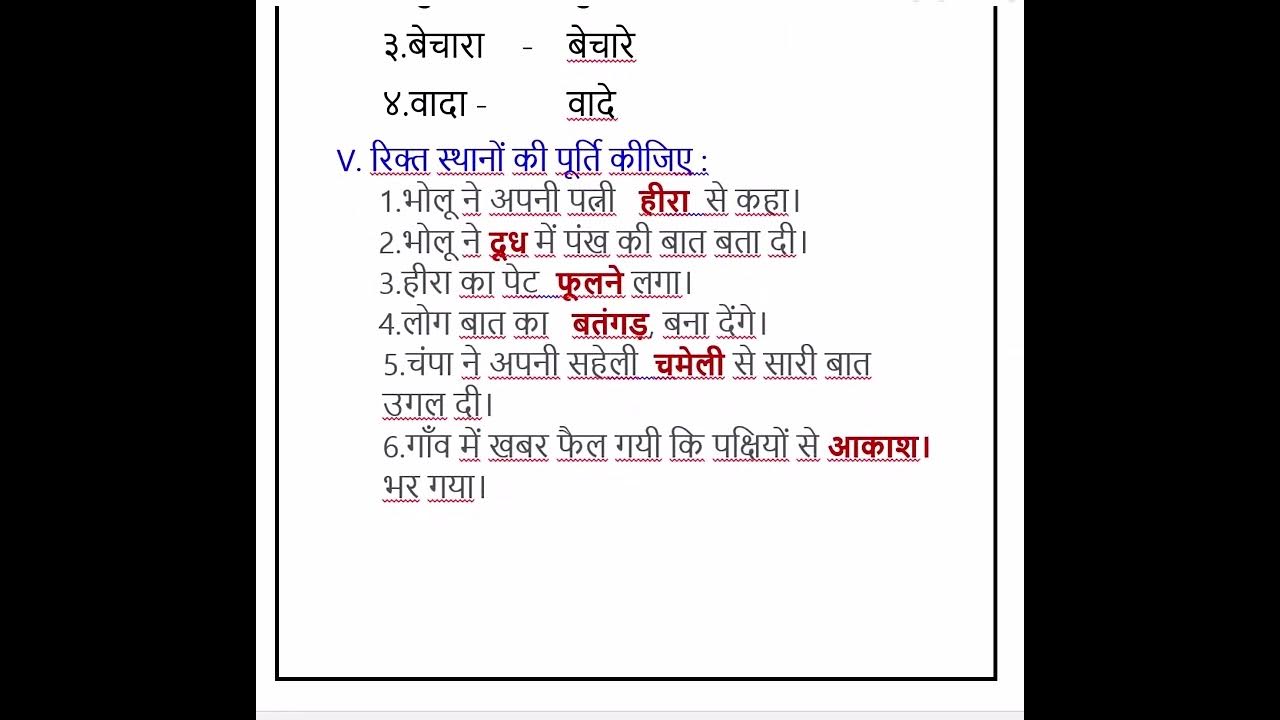 ३.बेचारा - बेचारे
४.वादा - वादे
V. रिक्त स्थानों की पूर्ति कीजिए :
1.भोलू ने अपनी पत्नी हीरा से कहा।
2.भोलू ने दूध में पंख की बात बता दी।
3.हीरा का पेट फूलने लगा।
4.लोग बात का बतंगड़, बना देंगे।
5.चंपा ने अपनी सहेली चमेली से सारी बात
उगल दी।
6.गाँव में खबर फैल गयी कि पक्षियों से आकाश।
भर गया।